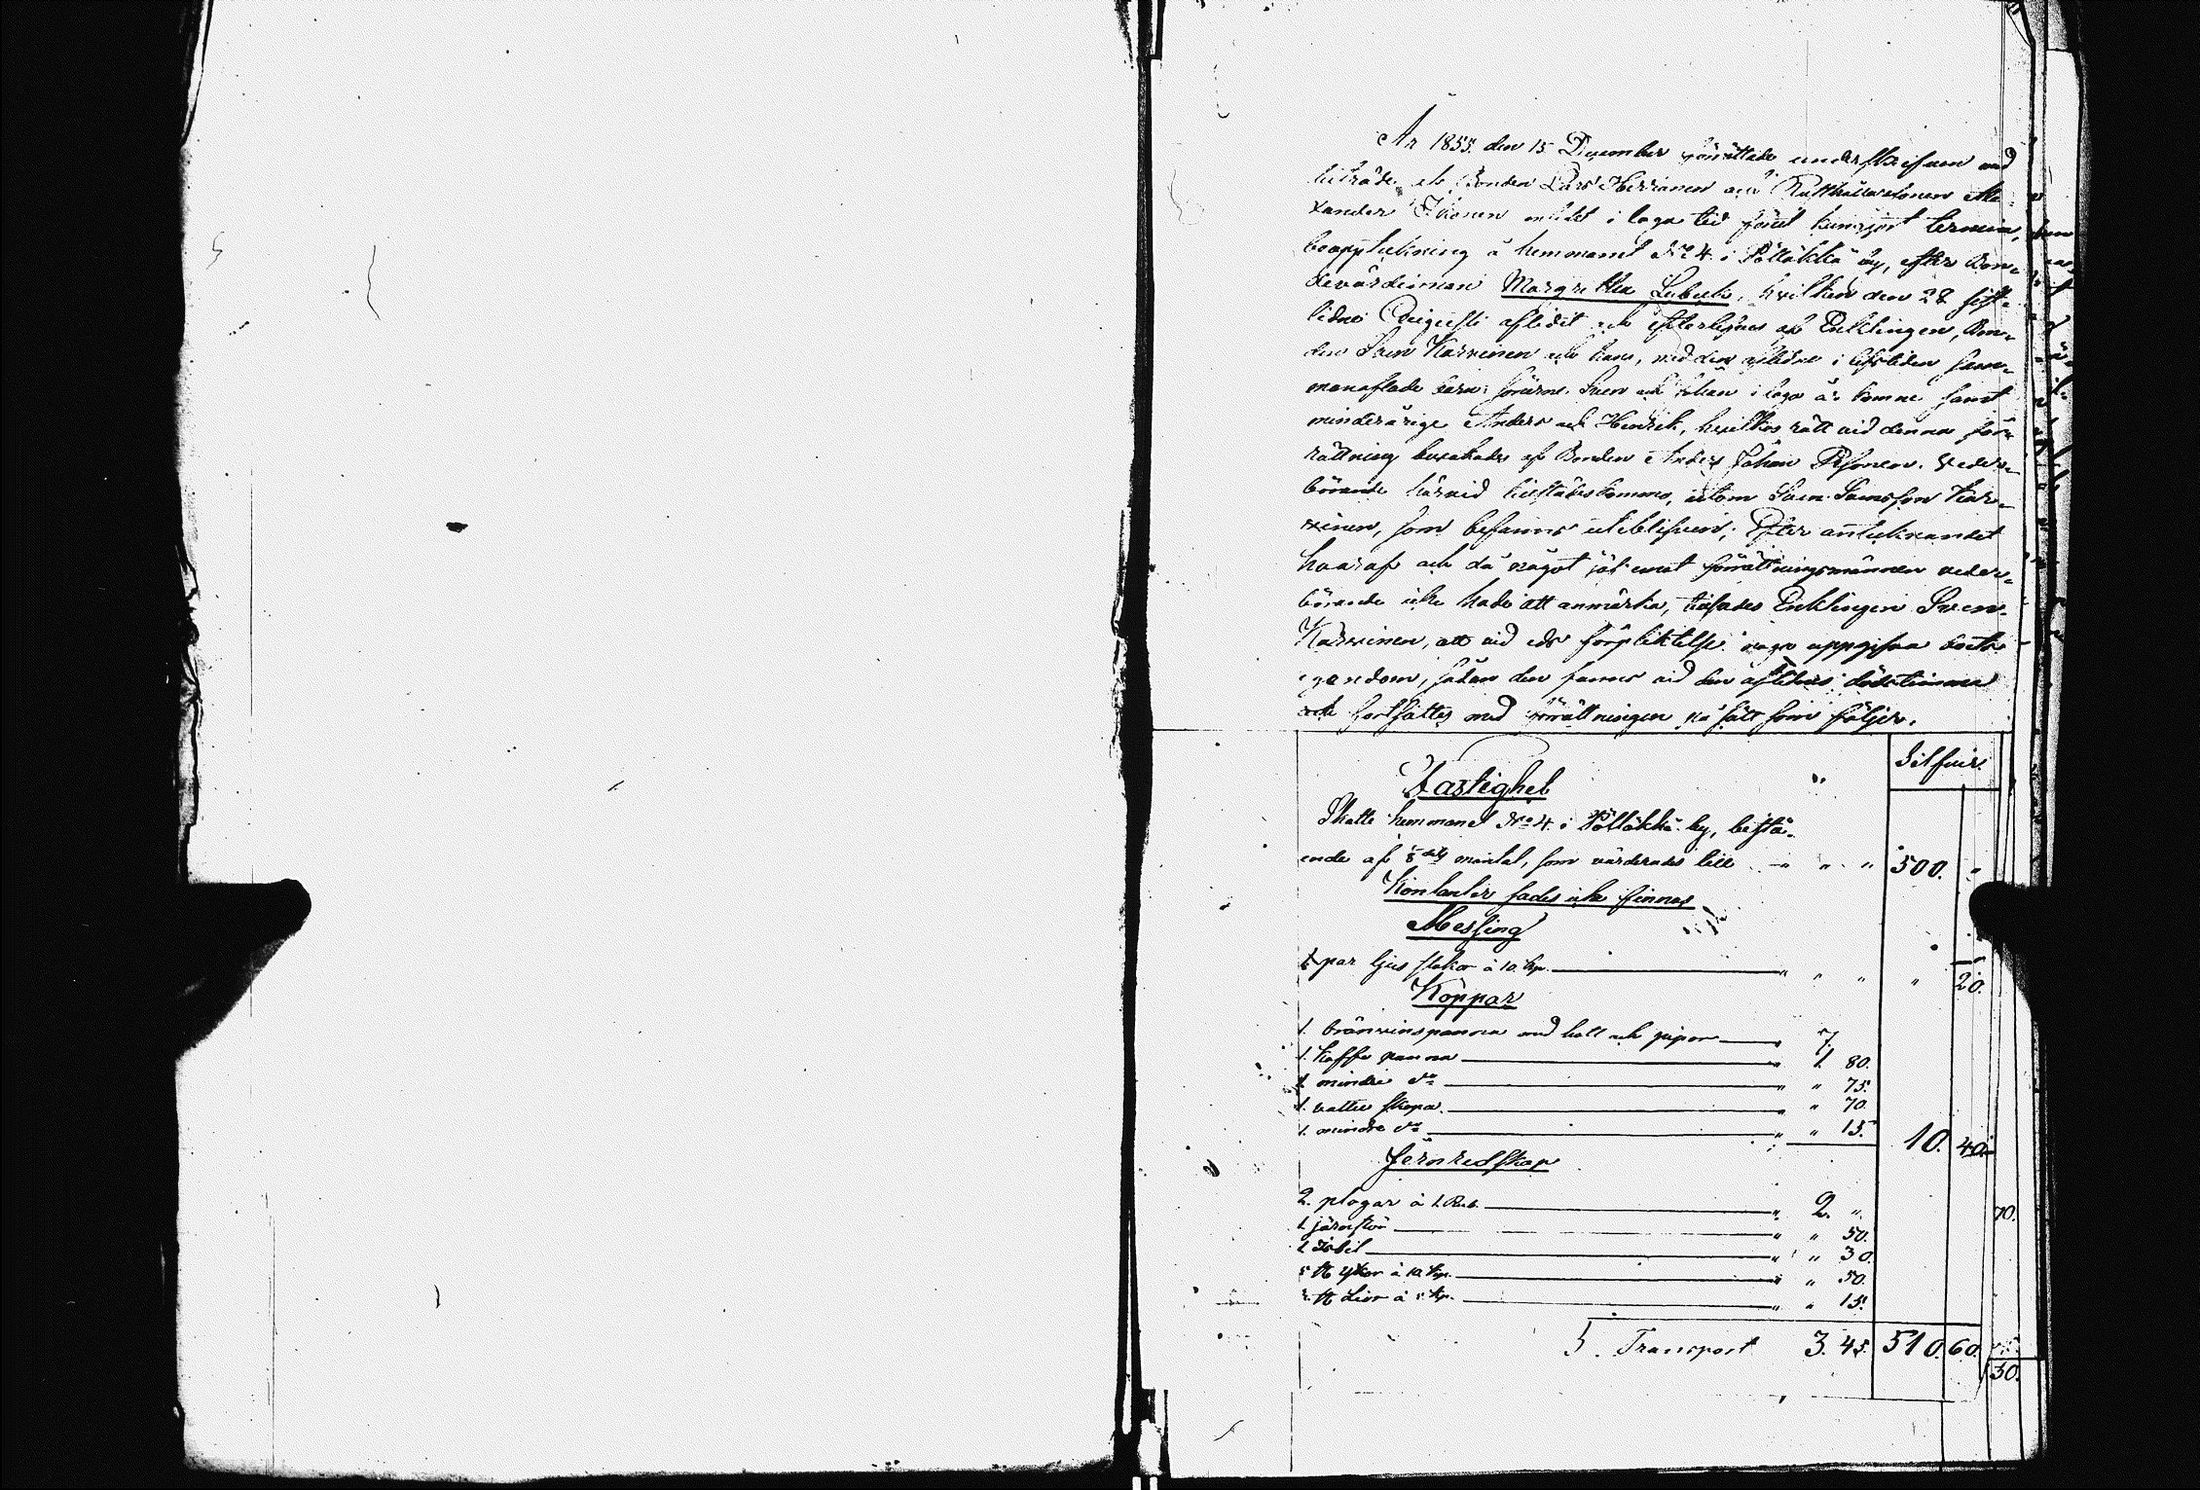 År 1855 den 15 December förrättade underskrifven med
biträde af Bonden Lars Hirvonen och
xander Ikonen enligt i laga tid förut kungjort termin,
bouppteckning å hemmanet No 4 i Pölläkkä by, efter Bon-
devärdinnan Margretha Lubeck, hvilken den 28 sist-
lidne Augusti aflidit och efterlefves af Enklingen, Bon-
den Sven Karvinen och hans, med den aflidne i lifstiden sam-
manaflade barn: sönerne Sven och Johan i laga år komne samt
minderårige Anders och Henrik, hvilkas rätt vid denna för-
rättning bevakades af Bonden Anders Johan Pesonen. Veder-
börande härvid tillstädeskommo, utom Sven Svensson Kar-
vinen, som befanns utebliven; Efter antecknandet
häraf och då något jäf emot förrättningsmännen veder-
börande icke hade att anmärka, tillsades Enklingen Sven
Karvinen, att vid eds förpliktelse noga uppgifva boets
egendom, sådan den fanns vid den aflidnes dödstimma
och fortsattes med förrättningen på sätt som följer.
Silfver.
Fastighet
Skatte hemmanet No 4 i Pölläkkä by, bestå-
ende af 1/8 dels mantal, som värderades till " " " 500. "
Kontanter sades icke finnas
Messing
1 par ljus stakar à 10 kop. " " " " 20.
Koppar
1. brännvinspanna med hatt och pipor " 7.
1. kaffe panna " 1 80.
1 mindre do " " 75.
1. vatten skopa " " 70.
1. mindre do " " 15. 10. 40.
Jernredskap
2. plogar à 1 Rub. " 2. " 70.
1 järnstör " " 50.
1 isbil " " 30.
5 st yxor à 10 kop. " " 50.
3 st liar à 5 kop. " " 15.
Transport 3. 45. 510. 60.
50.